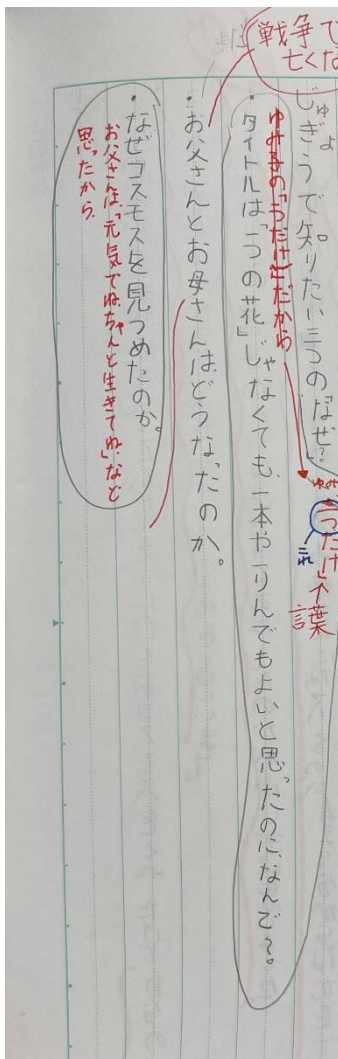 戦争で
亡くな
一つだけ」↑言葉
これ
じゅぎょうで知りたい三つの「なぜ?」
ゆみ子の「一つだけ」だから
・タイトルは「一つの花」じゃなくても、一本や一りんでもよいと思ったのに、なんで?。
・お父さんとお母さんはどうなったのか。
・なぜコスモスを見つめたのか。
お父さんは「元気でねちゃんと生きてね」など
思ったから。